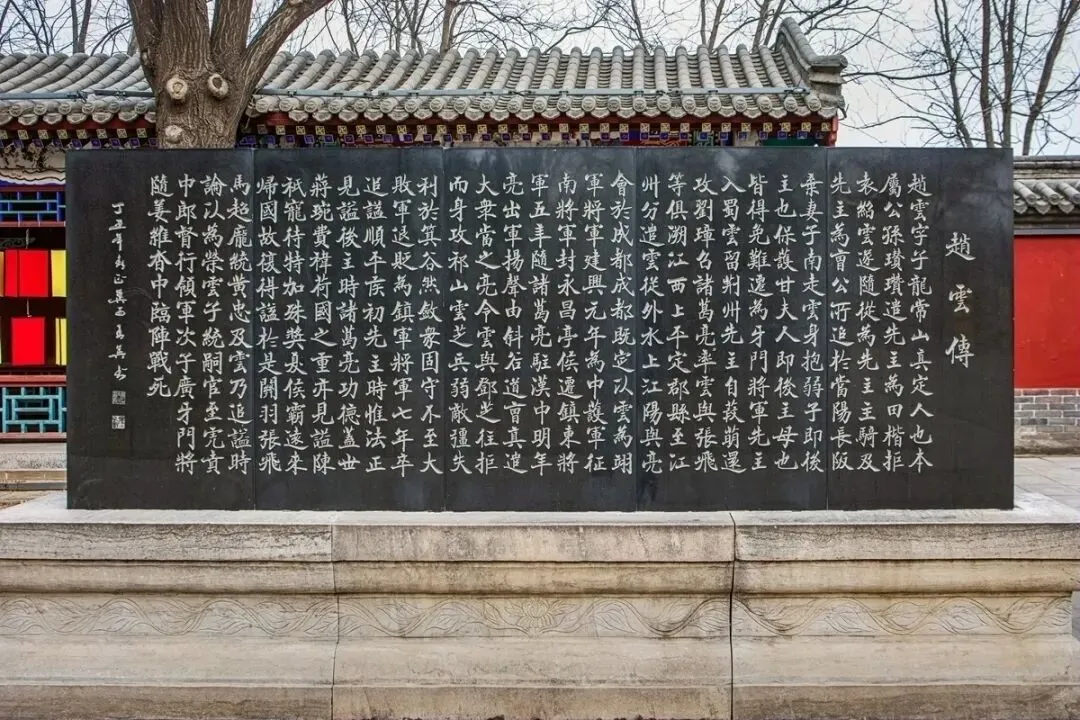 趙雲傳
趙雲字子龍常山真定人也本
屬公孫瓚瓚遣先主為田楷拒
袁紹雲遂隨從為先主主騎及
先主為曹公所追於當陽長阪
棄妻子南走雲身抱弱子即後
主也保護甘夫人即後主母也
皆得免難遷為牙門將軍先主
入蜀雲留荊州先主自葭萌還
攻劉璋召諸葛亮率雲與張飛
等俱溯江西上平定郡縣至江
州分遣雲從外水上江陽與亮
會於成都成都既定以雲為翊
軍將軍建興元年為中護軍征
南將軍封永昌亭侯遷鎮東將
軍五年隨諸葛亮駐漢中明年
亮出軍揚聲由斜谷道曹真遣
大衆當之亮令雲與鄧芝往拒
而身攻祁山雲芝兵弱敵彊失
利於箕谷然斂衆固守不至大
敗軍退貶為鎮軍將軍七年卒
追謚順平侯初先主時惟法正
見謚後主時諸葛亮功德蓋世
蔣琬費禕荷國之重亦見謚陳
祇寵待特加殊獎夏侯霸遠來
歸國故復得謚於是關羽張飛
馬超龐統黃忠及雲乃追謚時
論以為榮雲子統嗣官至虎賁
中郎督行領軍次子廣牙門將
隨姜維沓中臨陣戰死
丁丑年